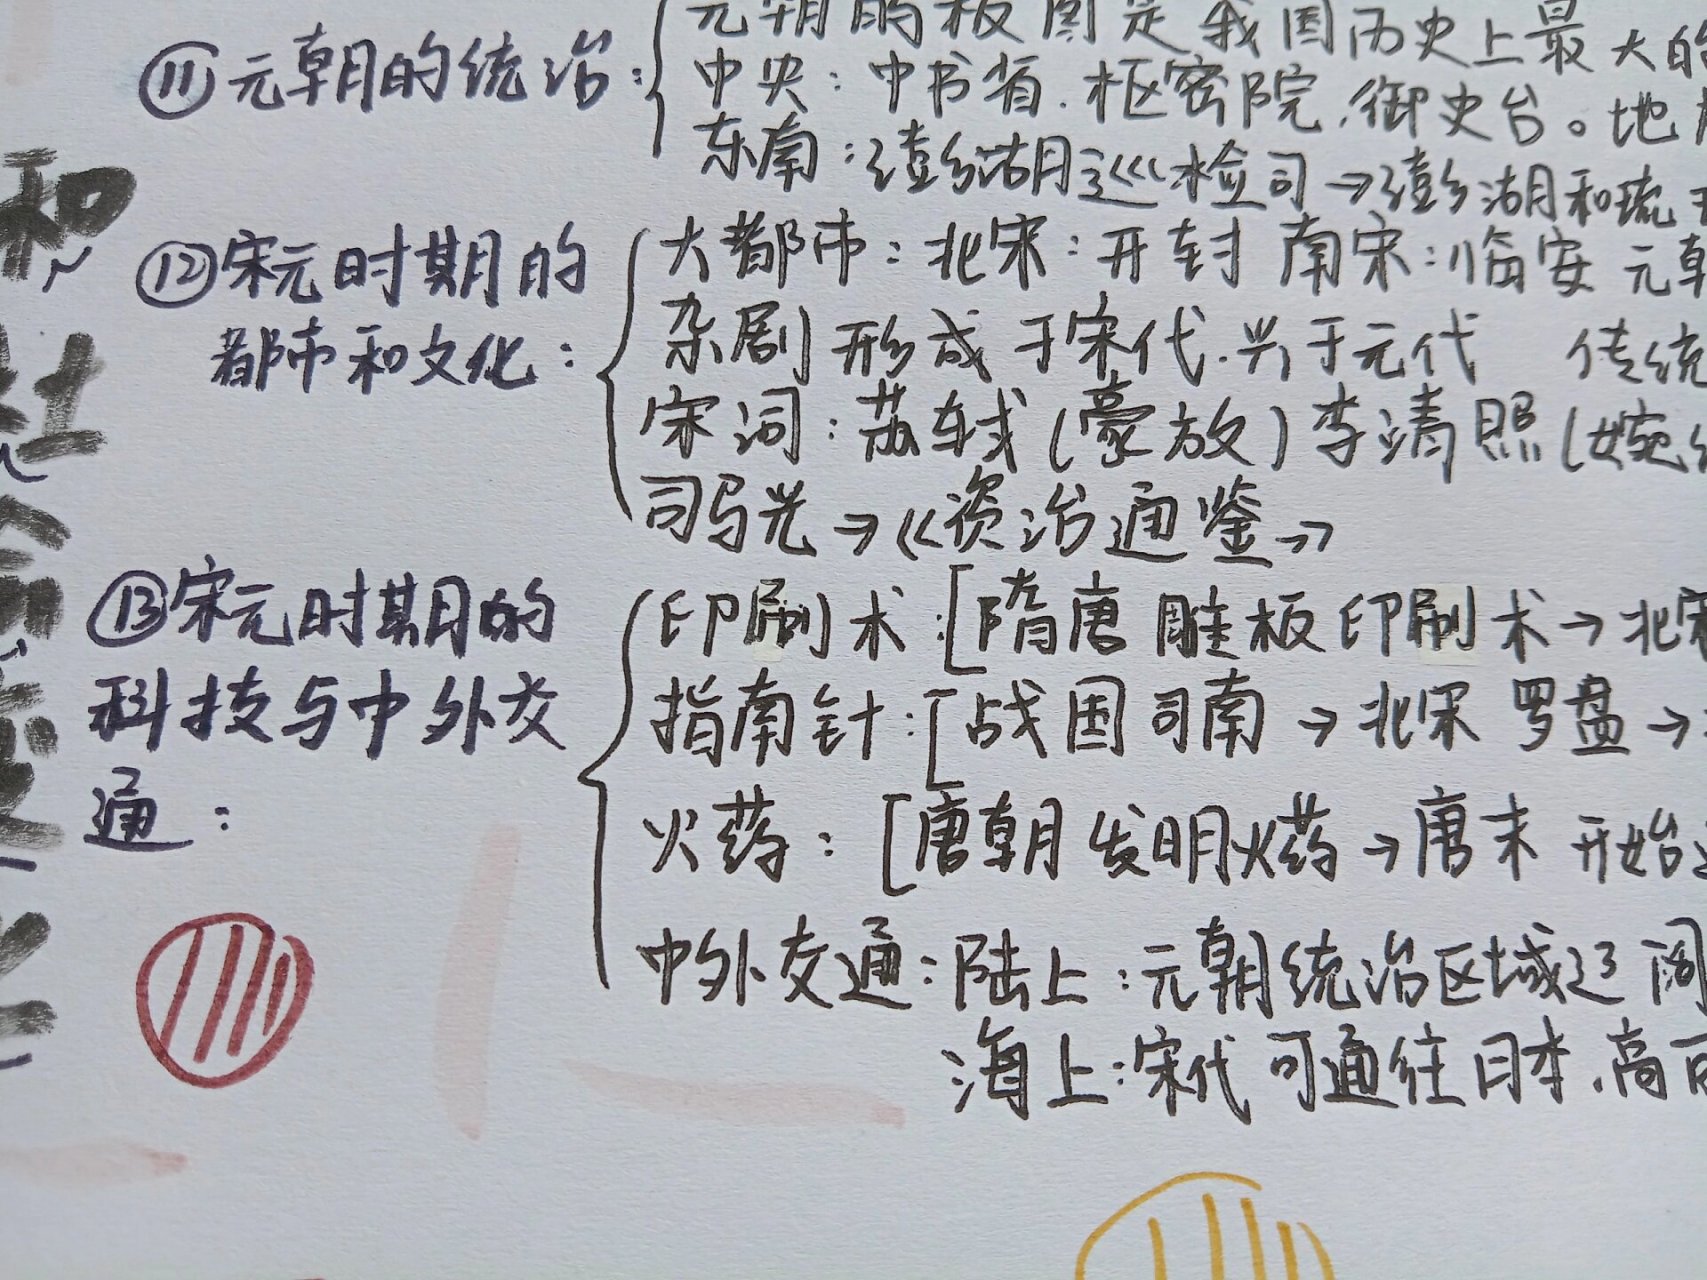 元朝的版图是我国历史上最大的
⑪元朝的统治：
中央：中书省.枢密院.御史台。地
东南：澎湖巡检司→澎湖和琉
⑫宋元时期的
都市和文化：
大都市：北宋：开封 南宋：临安 元朝
杂剧 形成于宋代.兴于元代 传统
宋词：苏轼(豪放)李清照(婉
司马光→《资治通鉴》
⑬宋元时期的
科技与中外交
通：
印刷术：[隋唐 雕板印刷术→北宋
指南针：[战国司南→北宋 罗盘→
火药：[唐朝发明火药→唐末 开始
中外交通：陆上：元朝统治区域辽阔
海上：宋代可通往日本.高
和
社
会